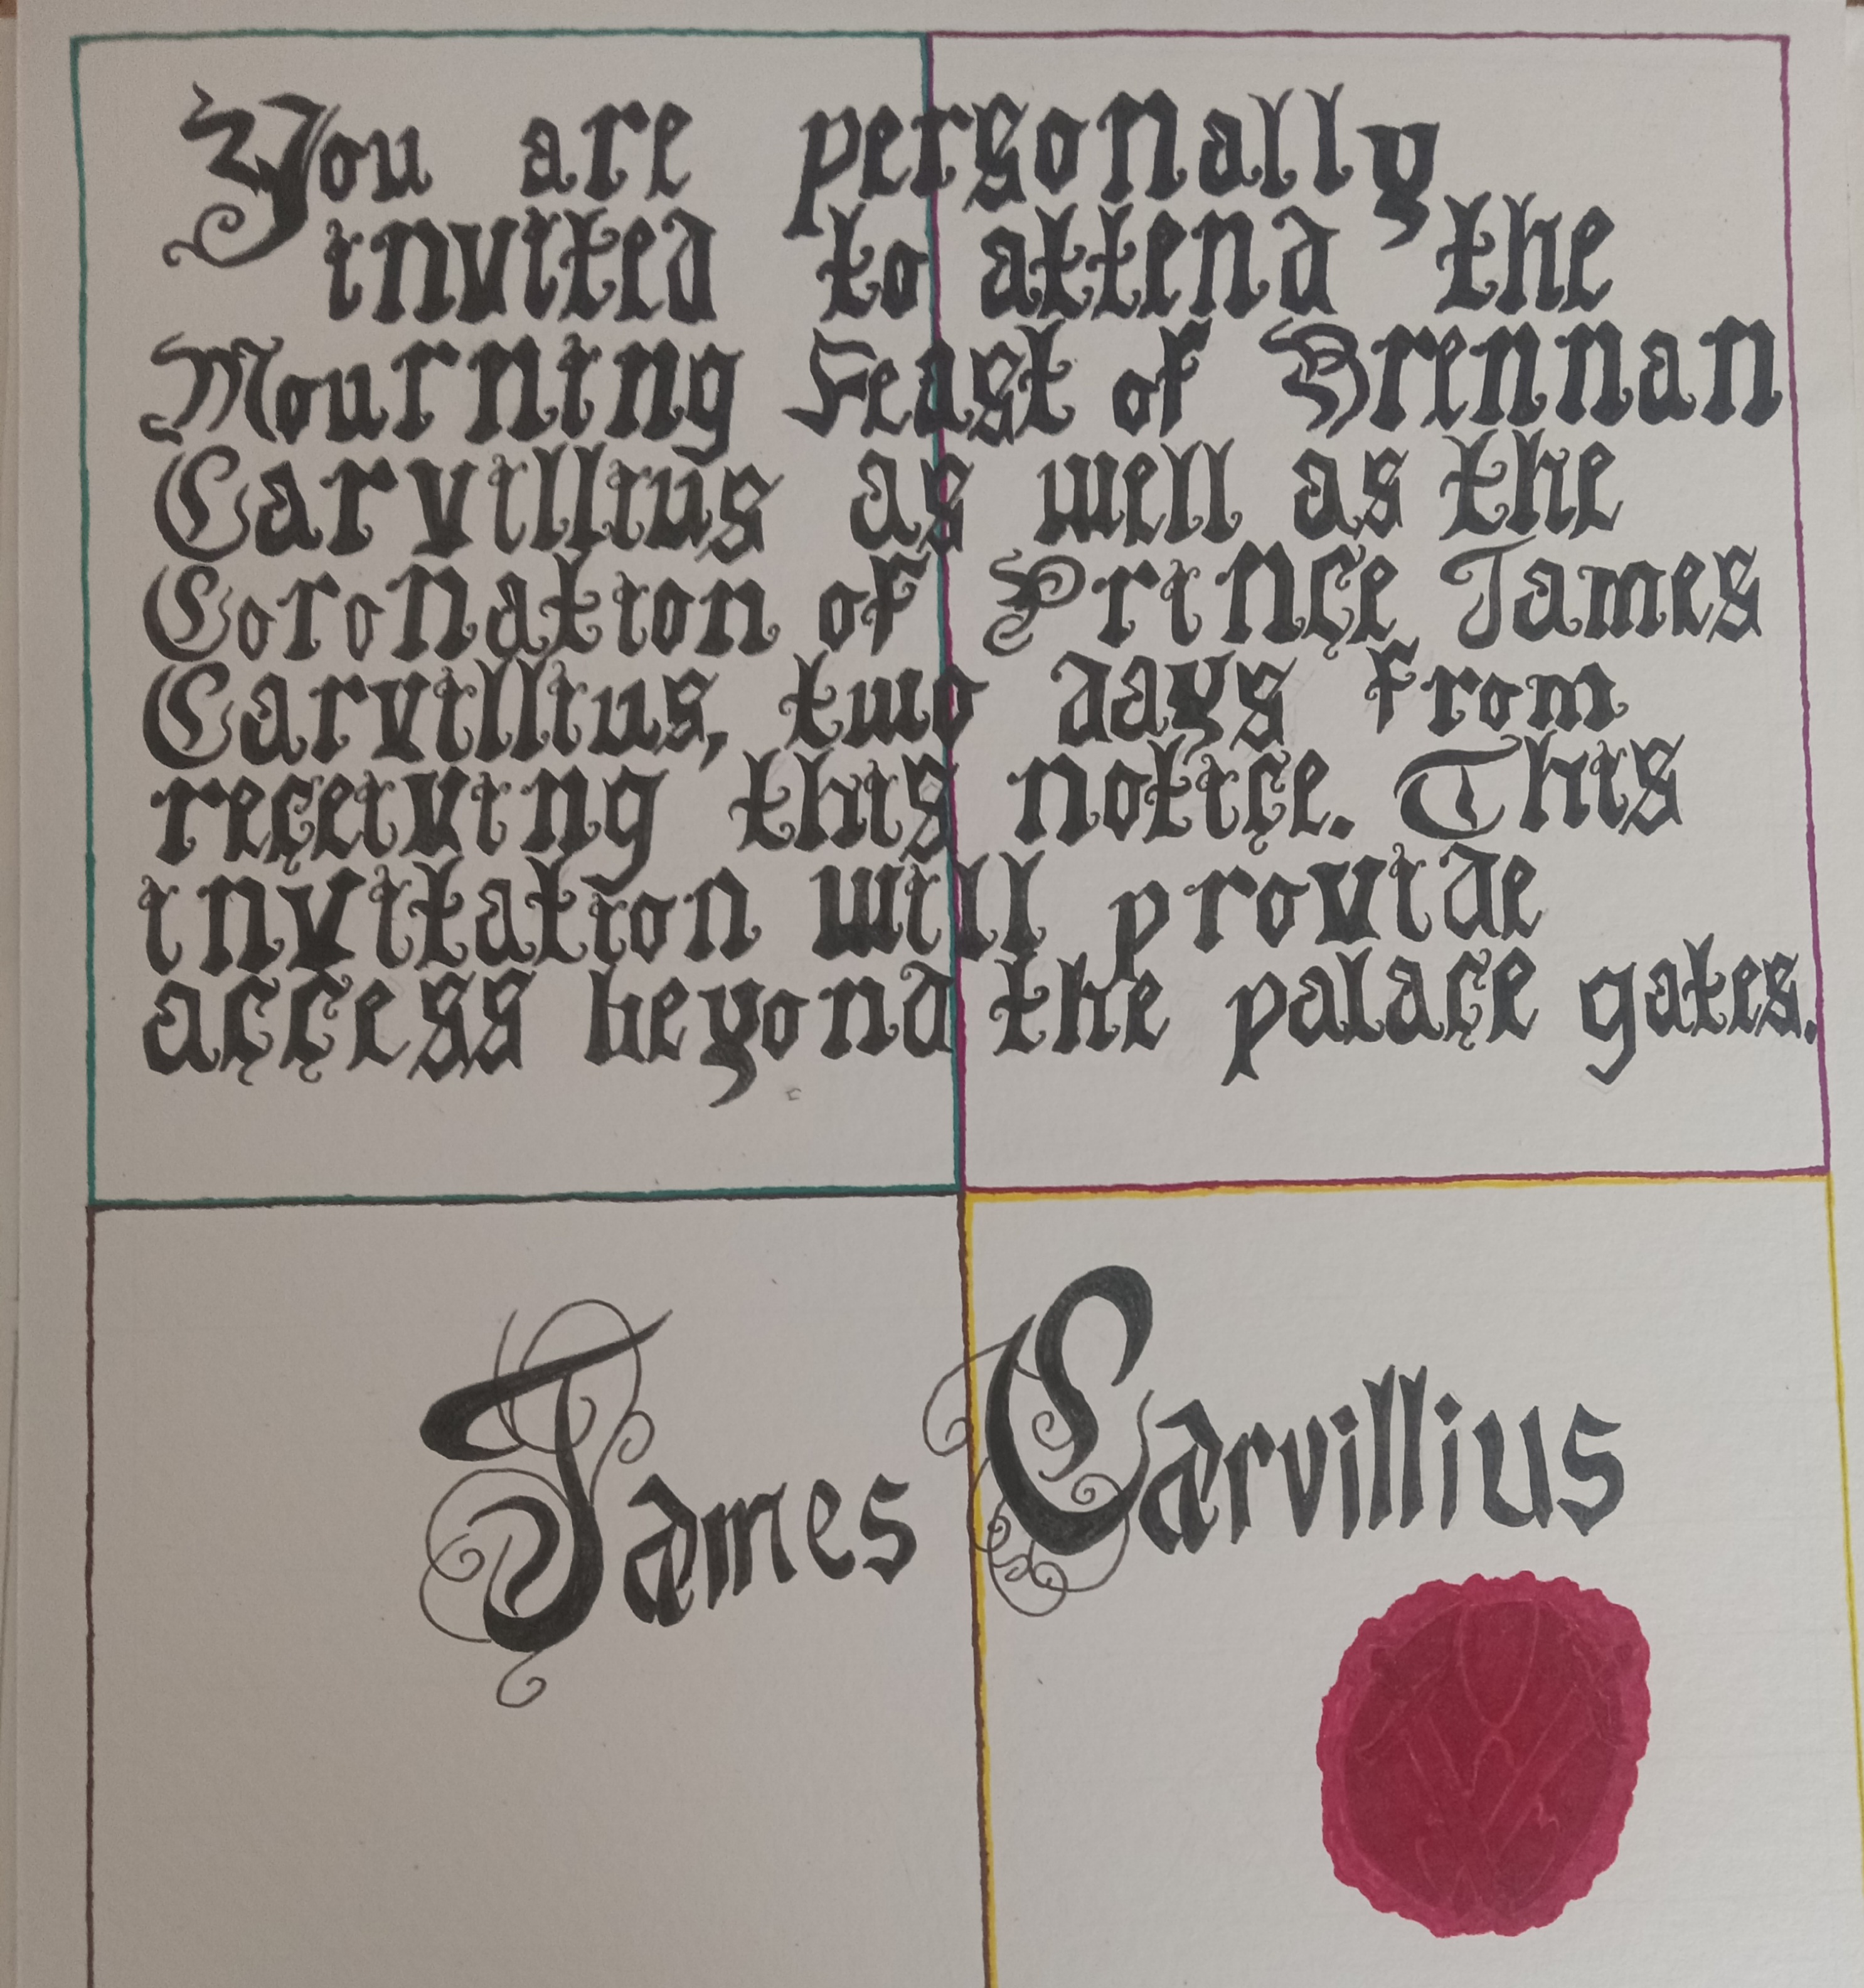 You are personally
invited to attend the
Mourning Feast of Brennan
Carvillius as well as the
Coronation of Prince James
Carvillius, two days from
receiving this notice. This
invitation will provide
access beyond the palace gates.
James Carvillius